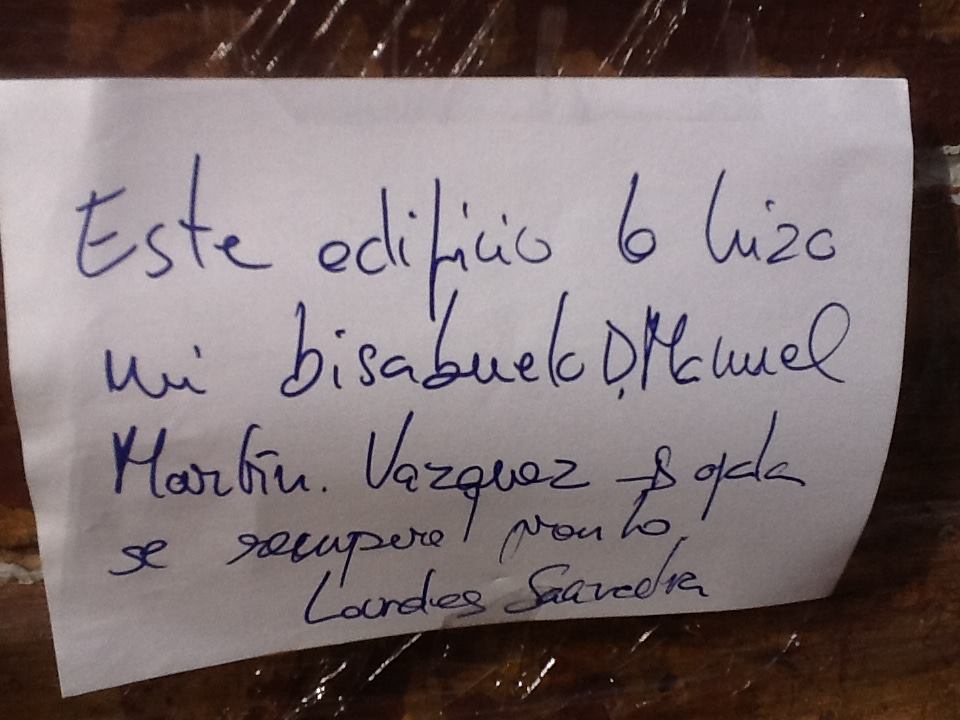 Este edificio lo hizo
mi bisabuelo D. Manuel
Martín. Vazquez ojala
se recupere pronto,
Lourdes Saavedra